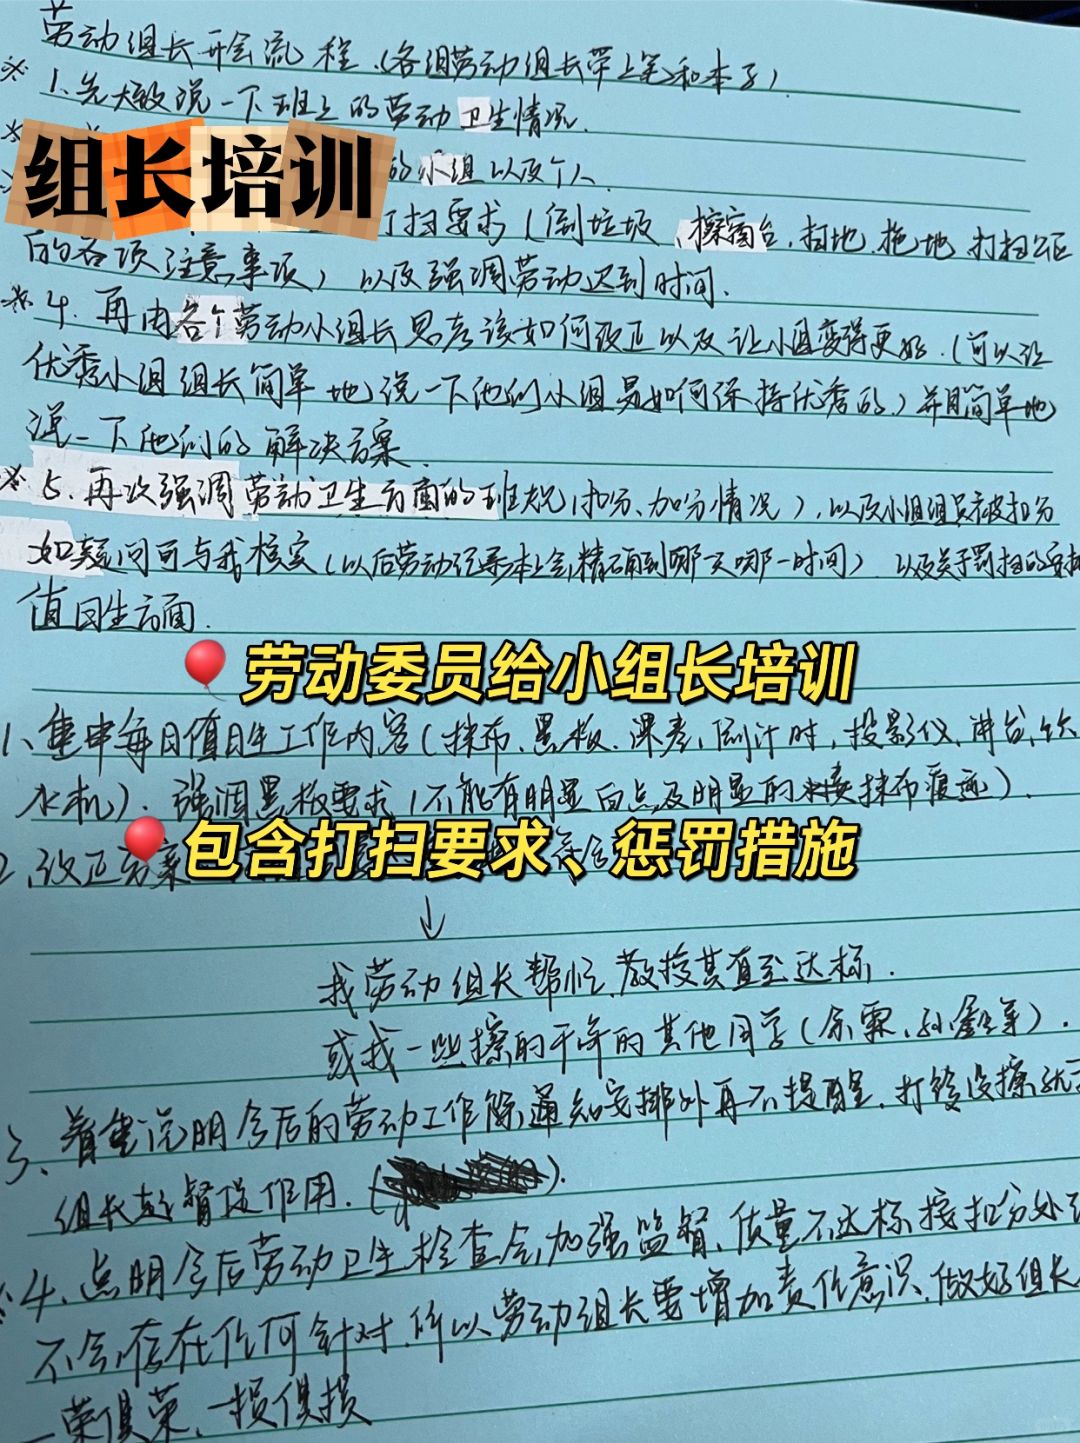 劳动组长开会流程.(各组劳动组长带上笔和本子)
※ 1.先大致说一下班上的劳动卫生情况.
组长培训
的小组以及个人.
打扫要求(倒垃圾、擦窗台.扫地.拖地.打扫公区
的各项注意事项)以及强调劳动迟到时间.
※ 4.再由各个劳动小组长思考该如何改正以及让小组变得更好.(可以让
优秀小组组长简单地说一下他们小组是如何保持优秀的)并且简单地
说一下他们的解决方案.
※ 5.再次强调劳动卫生方面的班规(扣分、加分情况),以及小组组员被扣分
如疑问可与我核实(以后劳动记录本上会精确到哪一天哪一时间).以及关于罚扫的安排
值日生方面.
🎈劳动委员给小组长培训
1、重申每日值日生工作内容(抹布、黑板、课表,倒计时,投影仪、讲台,饮
水机).强调黑板要求(不能有明显白点及明显的抹布痕迹).
🎈包含打扫要求、惩罚措施
2.改正方案
↓
找劳动组长帮忙,教授其直至达标.
或找一些擦的干净的其他同学
3、着重说明今后的劳动工作除通知安排外再不提醒.打铃没擦就
组长起督促作用.
4、点明今后劳动卫生检查会加强监督、质量不达标按扣分处
不会存在任何针对.所以劳动组长要增加责任意识.做好组长
一荣俱荣、一损俱损